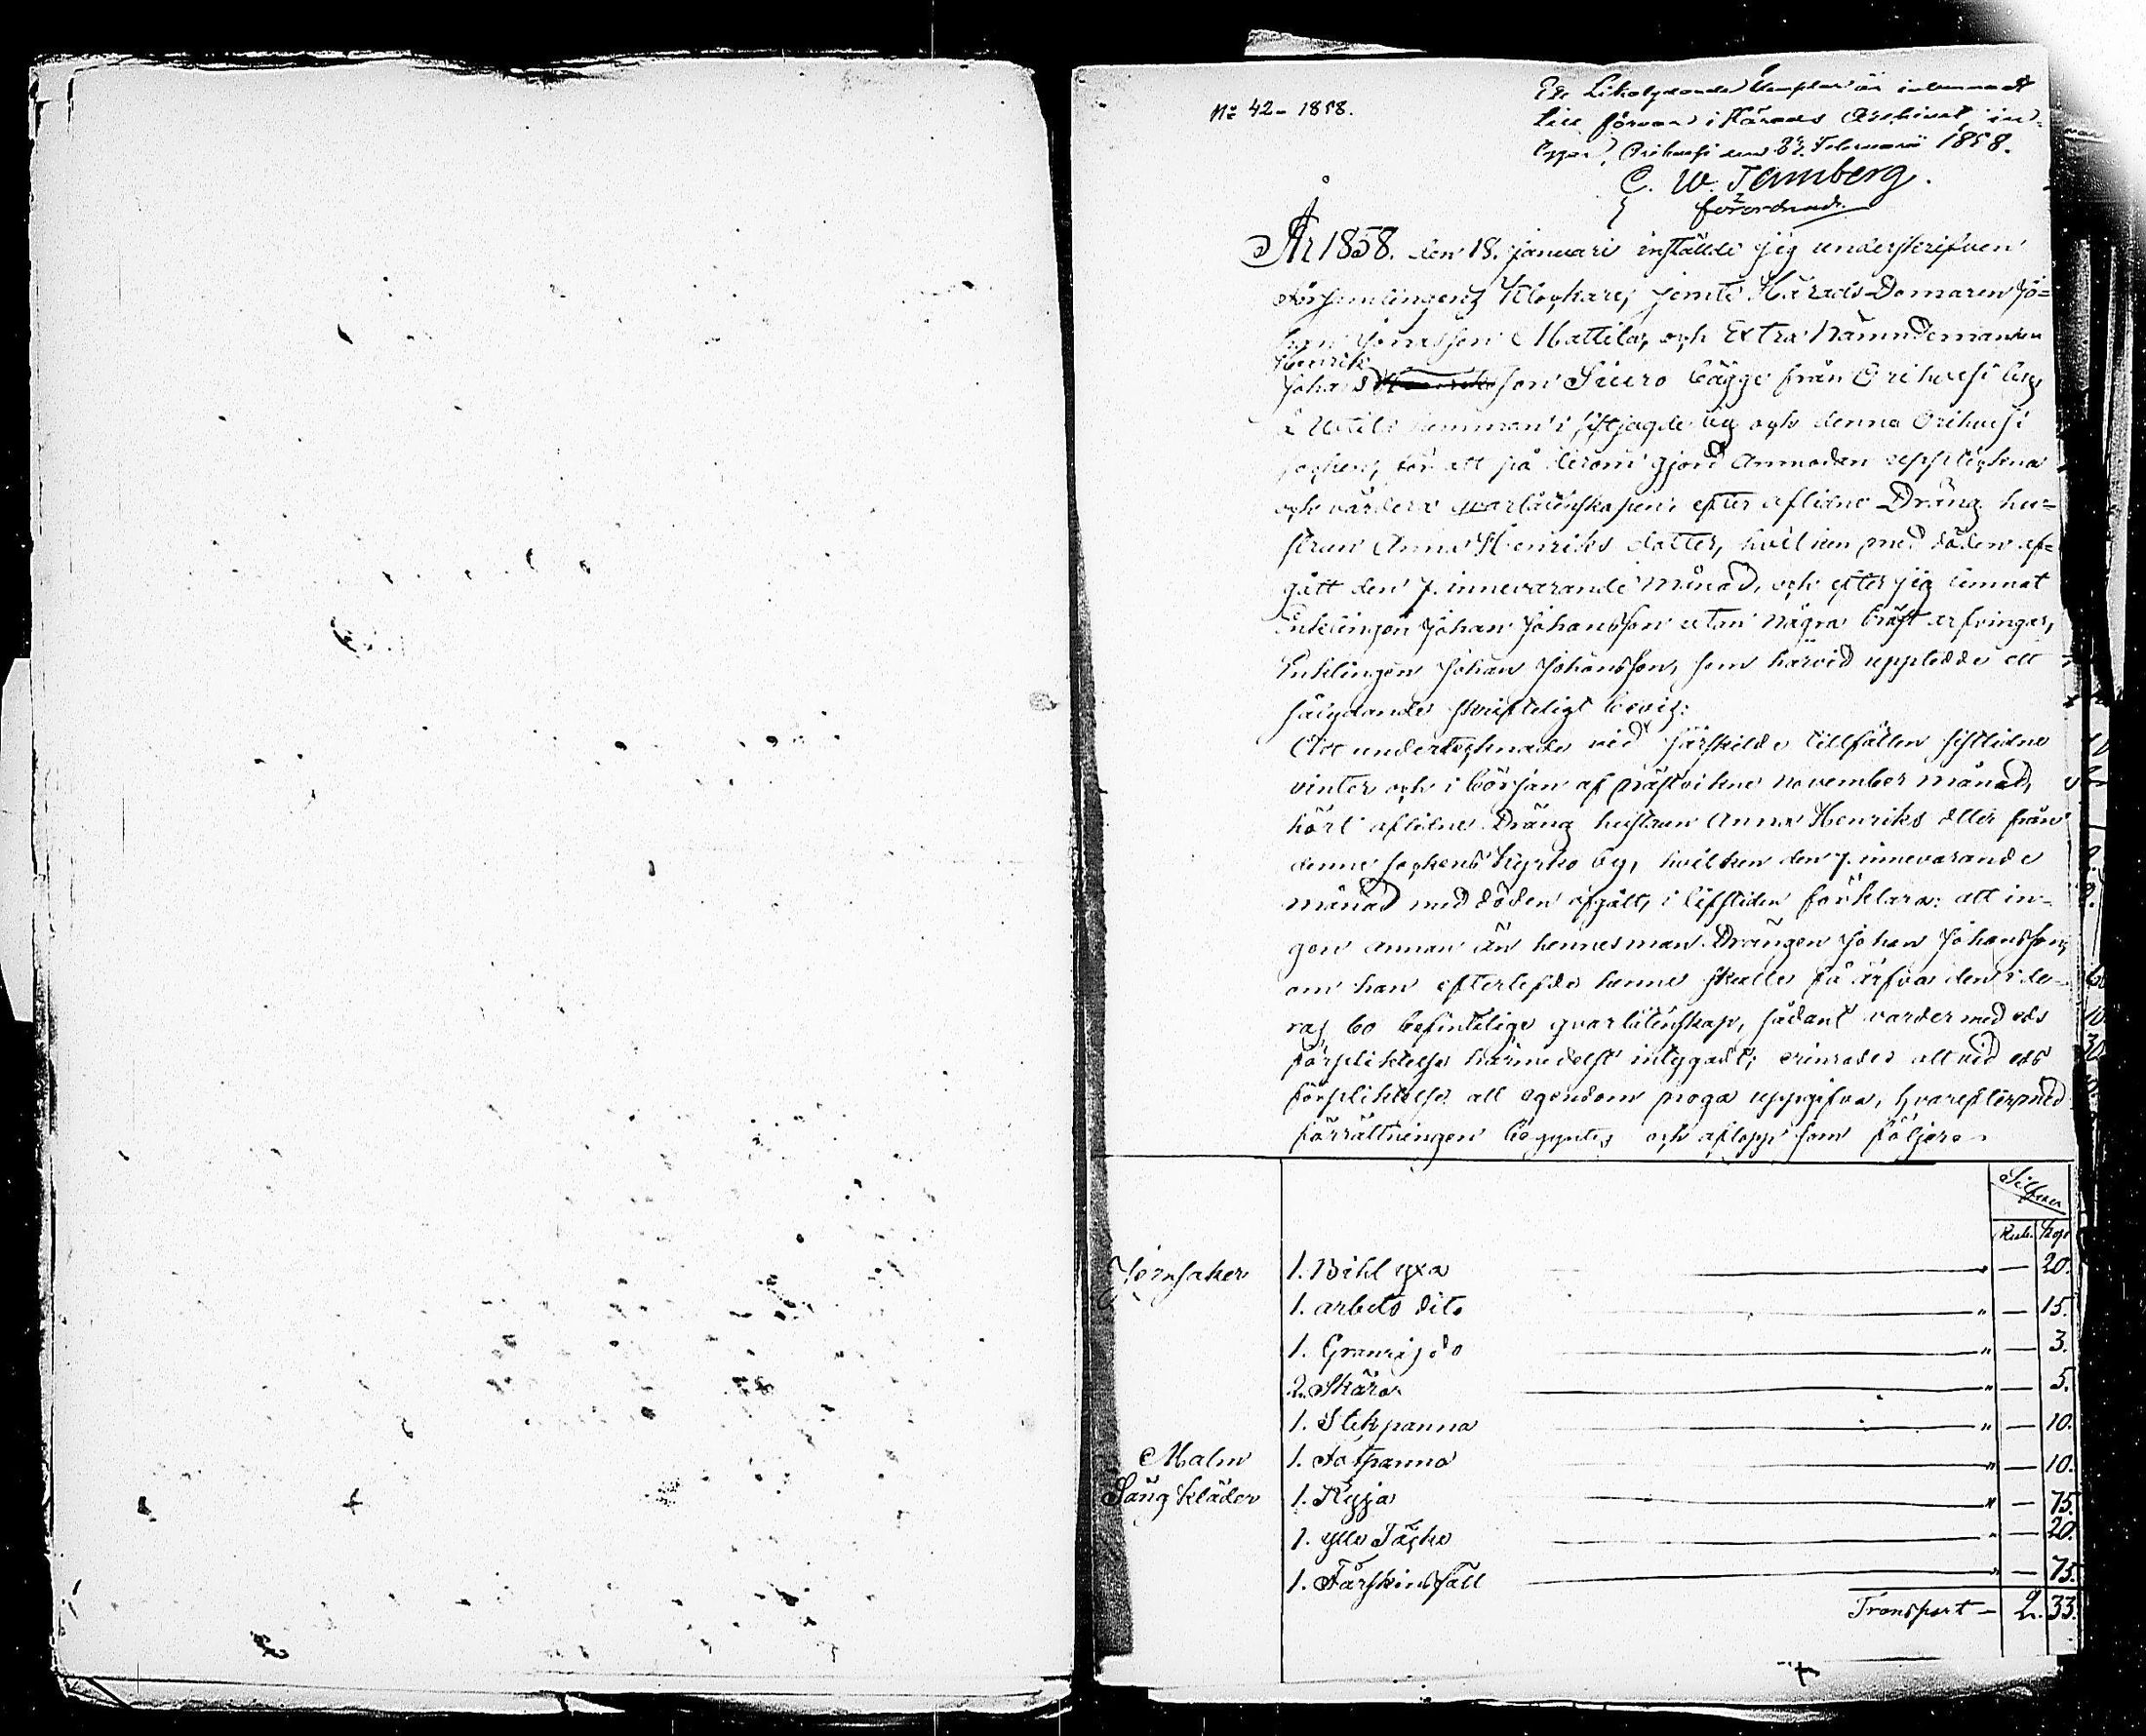 No 42 - 1858.
Ett Likalydande Exemplar är inlemnadt
till förvar i Härads Archivet in-
tygar, Orihvesi den Februari 1858.
C. W. Tamberg.
förordnad.
År 1858. den 18. Januari inställde sig underskrifven
Församlingens Klockare, jemte Härads Domaren Jo=
han Jonasson Mattila, och Extra Nämndemannen
Henrik
Johansson Siuro bägge från Orihvesi by,
å Uotila hemman i sistsagde by och denna Orihvesi
socken, för att på derom gjord Anmodan uppteckna
och värdera qvarlåtenskapen, efter aflidne Dräng hu=
strun Anna Henriks dotter, hvilken med döden af=
gått den 7. innevarande Månad, och efter sig lemnat
Enklingen Johan Johansson utan några bröst arfvingar,
Enklingen Johan Johansson, som härvid uppteedde ett
sålydande skrifteligt bevis:
Att undertecknade vid särskilde tillfällen sistlidne
vinter och i början af nästvikne november månad,
hört aflidne Dräng hustrun Anna Henriks dtter från
denne sockens Kyrko by, hvilken den 7. innevarande
månad med döden afgått, i lifstiden förklara: att in-
gen annan än hennes man Drängen Johan Johansson,
om han efterlefde henne skulle få ärfva den i de-
ras bo befintelige qvarlåtenskap, sådant varder med eds
förpliktelse härmedelst intygadt; erinrades att vid eds
förpliktelse all egendom noga uppgifva, hvarefter med
förrättningen begyntes och aflopp som följer:
Silfver
Rub. Kop.
Jernsaker 1. Bihl yxa " — 20.
1. arbets dito " — 15.
1. Granris do " — 3.
2. Skäror " — 5.
1. Stekpanna " — 10.
Malm 1. Fotpanna " — 10.
Säng kläder 1. Ryja " — 75.
1. ylle Täcke " — 20.
1. Fårskinsfäll " — 75.
Transport — 2. 33.